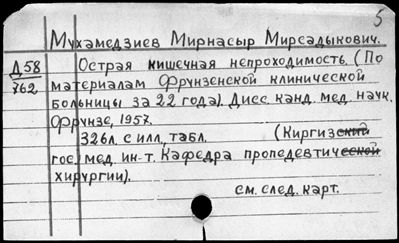 5
Мухамедзиев Мирнасыр Мирсадыкович.
Д58 Острая кишечная непроходимость. (По
762 материалам Фрунзенской клинической
больницы за 22 года). Дисс. канд. мед. наук.
Фрунзе, 1957.
326л. с илл, табл. (Киргизский
гос. мед. ин-т. Кафедра пропедевтической
хирургии).
см. след. карт.